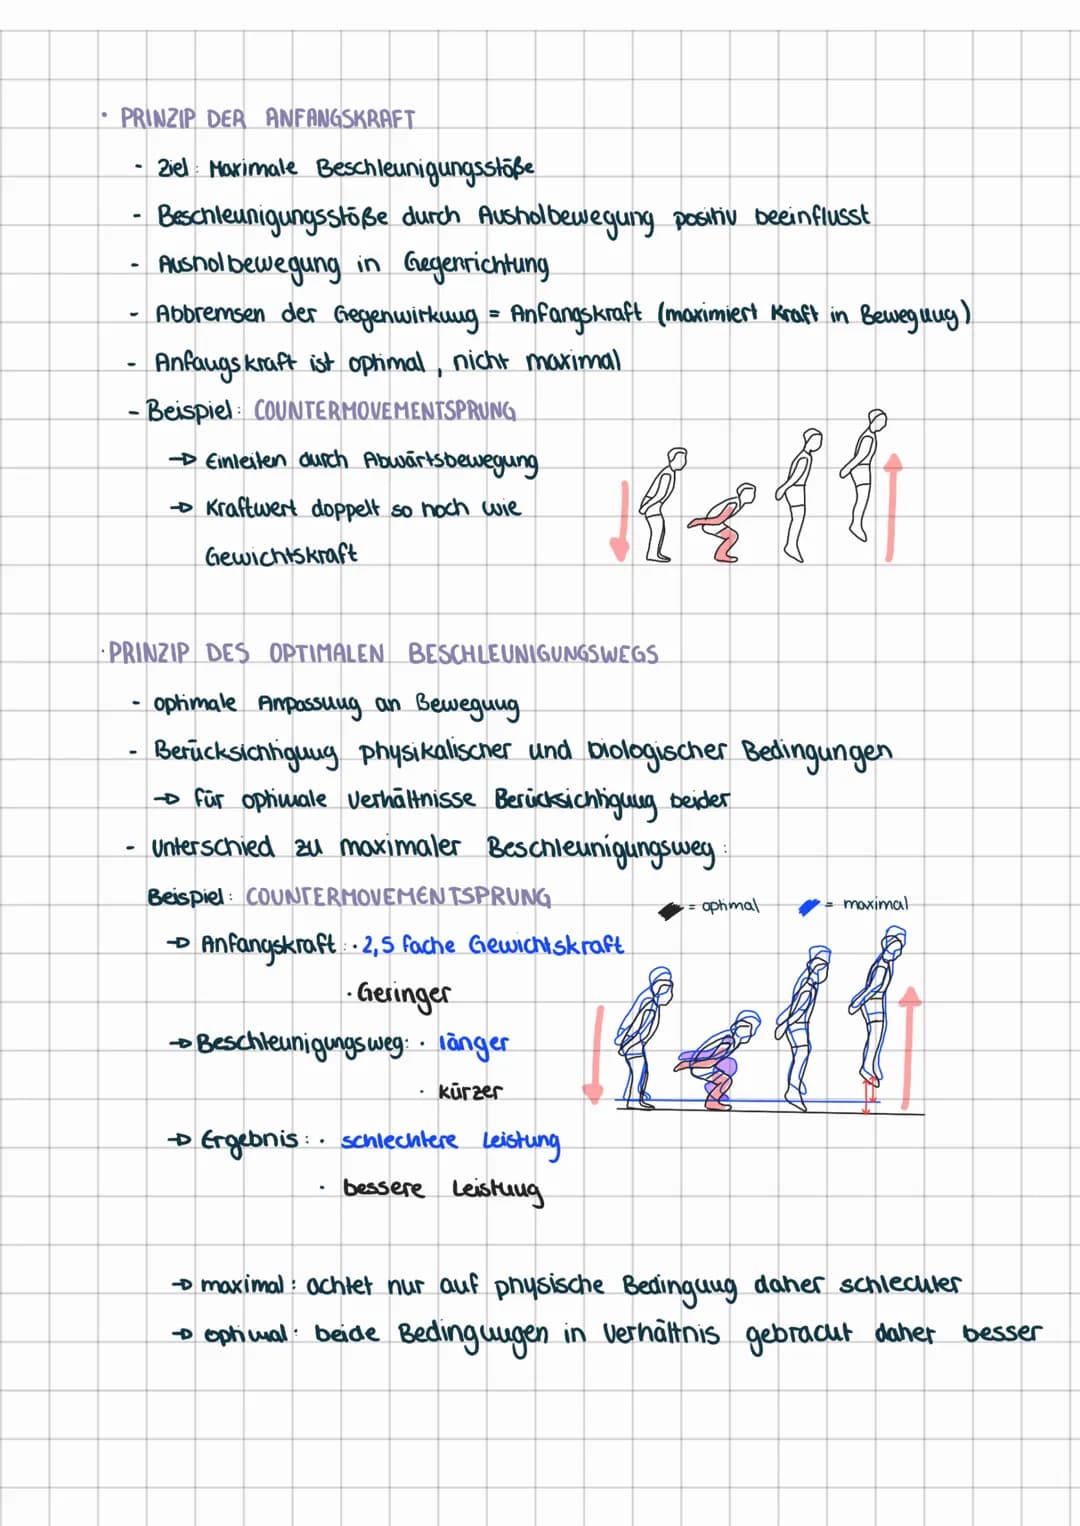 · PRINZIP DER ANFANGSKRAFT
- Ziel: Maximale Beschleunigungsstöße
- Beschleunigungsstöße durch Ausholbewegung positiv beeinflusst
- Ausholbewegung in Gegenrichtung
- Abbremsen der Gegenwirkung = Anfangskraft (maximiert Kraft in Bewegung)
- Anfangskraft ist optimal, nicht maximal
- Beispiel: COUNTERMOVEMENTSPRUNG
→ Einleiten durch Abwärtsbewegung
→ Kraftwert doppelt so hoch wie
Gewichtskraft
· PRINZIP DES OPTIMALEN BESCHLEUNIGUNGSWEGS
- optimale Anpassung an Bewegung
- Berücksichtigung physikalischer und biologischer Bedingungen
→ für optimale Verhältnisse Berücksichtigung beider
- Unterschied zu maximaler Beschleunigungsweg:
Beispiel: COUNTERMOVEMENTSPRUNG
= optimal = maximal
→ Anfangskraft: · 2,5 fache Gewichtskraft
· Geringer
→ Beschleunigungsweg: · länger
· kürzer
→ Ergebnis: · schlechtere Leistung
· bessere Leistung
→ maximal: achtet nur auf physische Bedingung daher schlechter
→ optimal: beide Bedingungen in Verhältnis gebracht daher besser